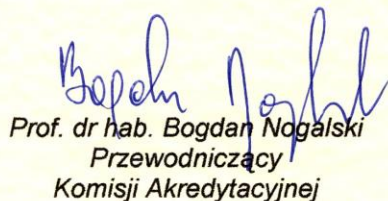 Bogdan Nogalski
Prof. dr hab. Bogdan Nogalski
Przewodniczący
Komisji Akredytacyjnej